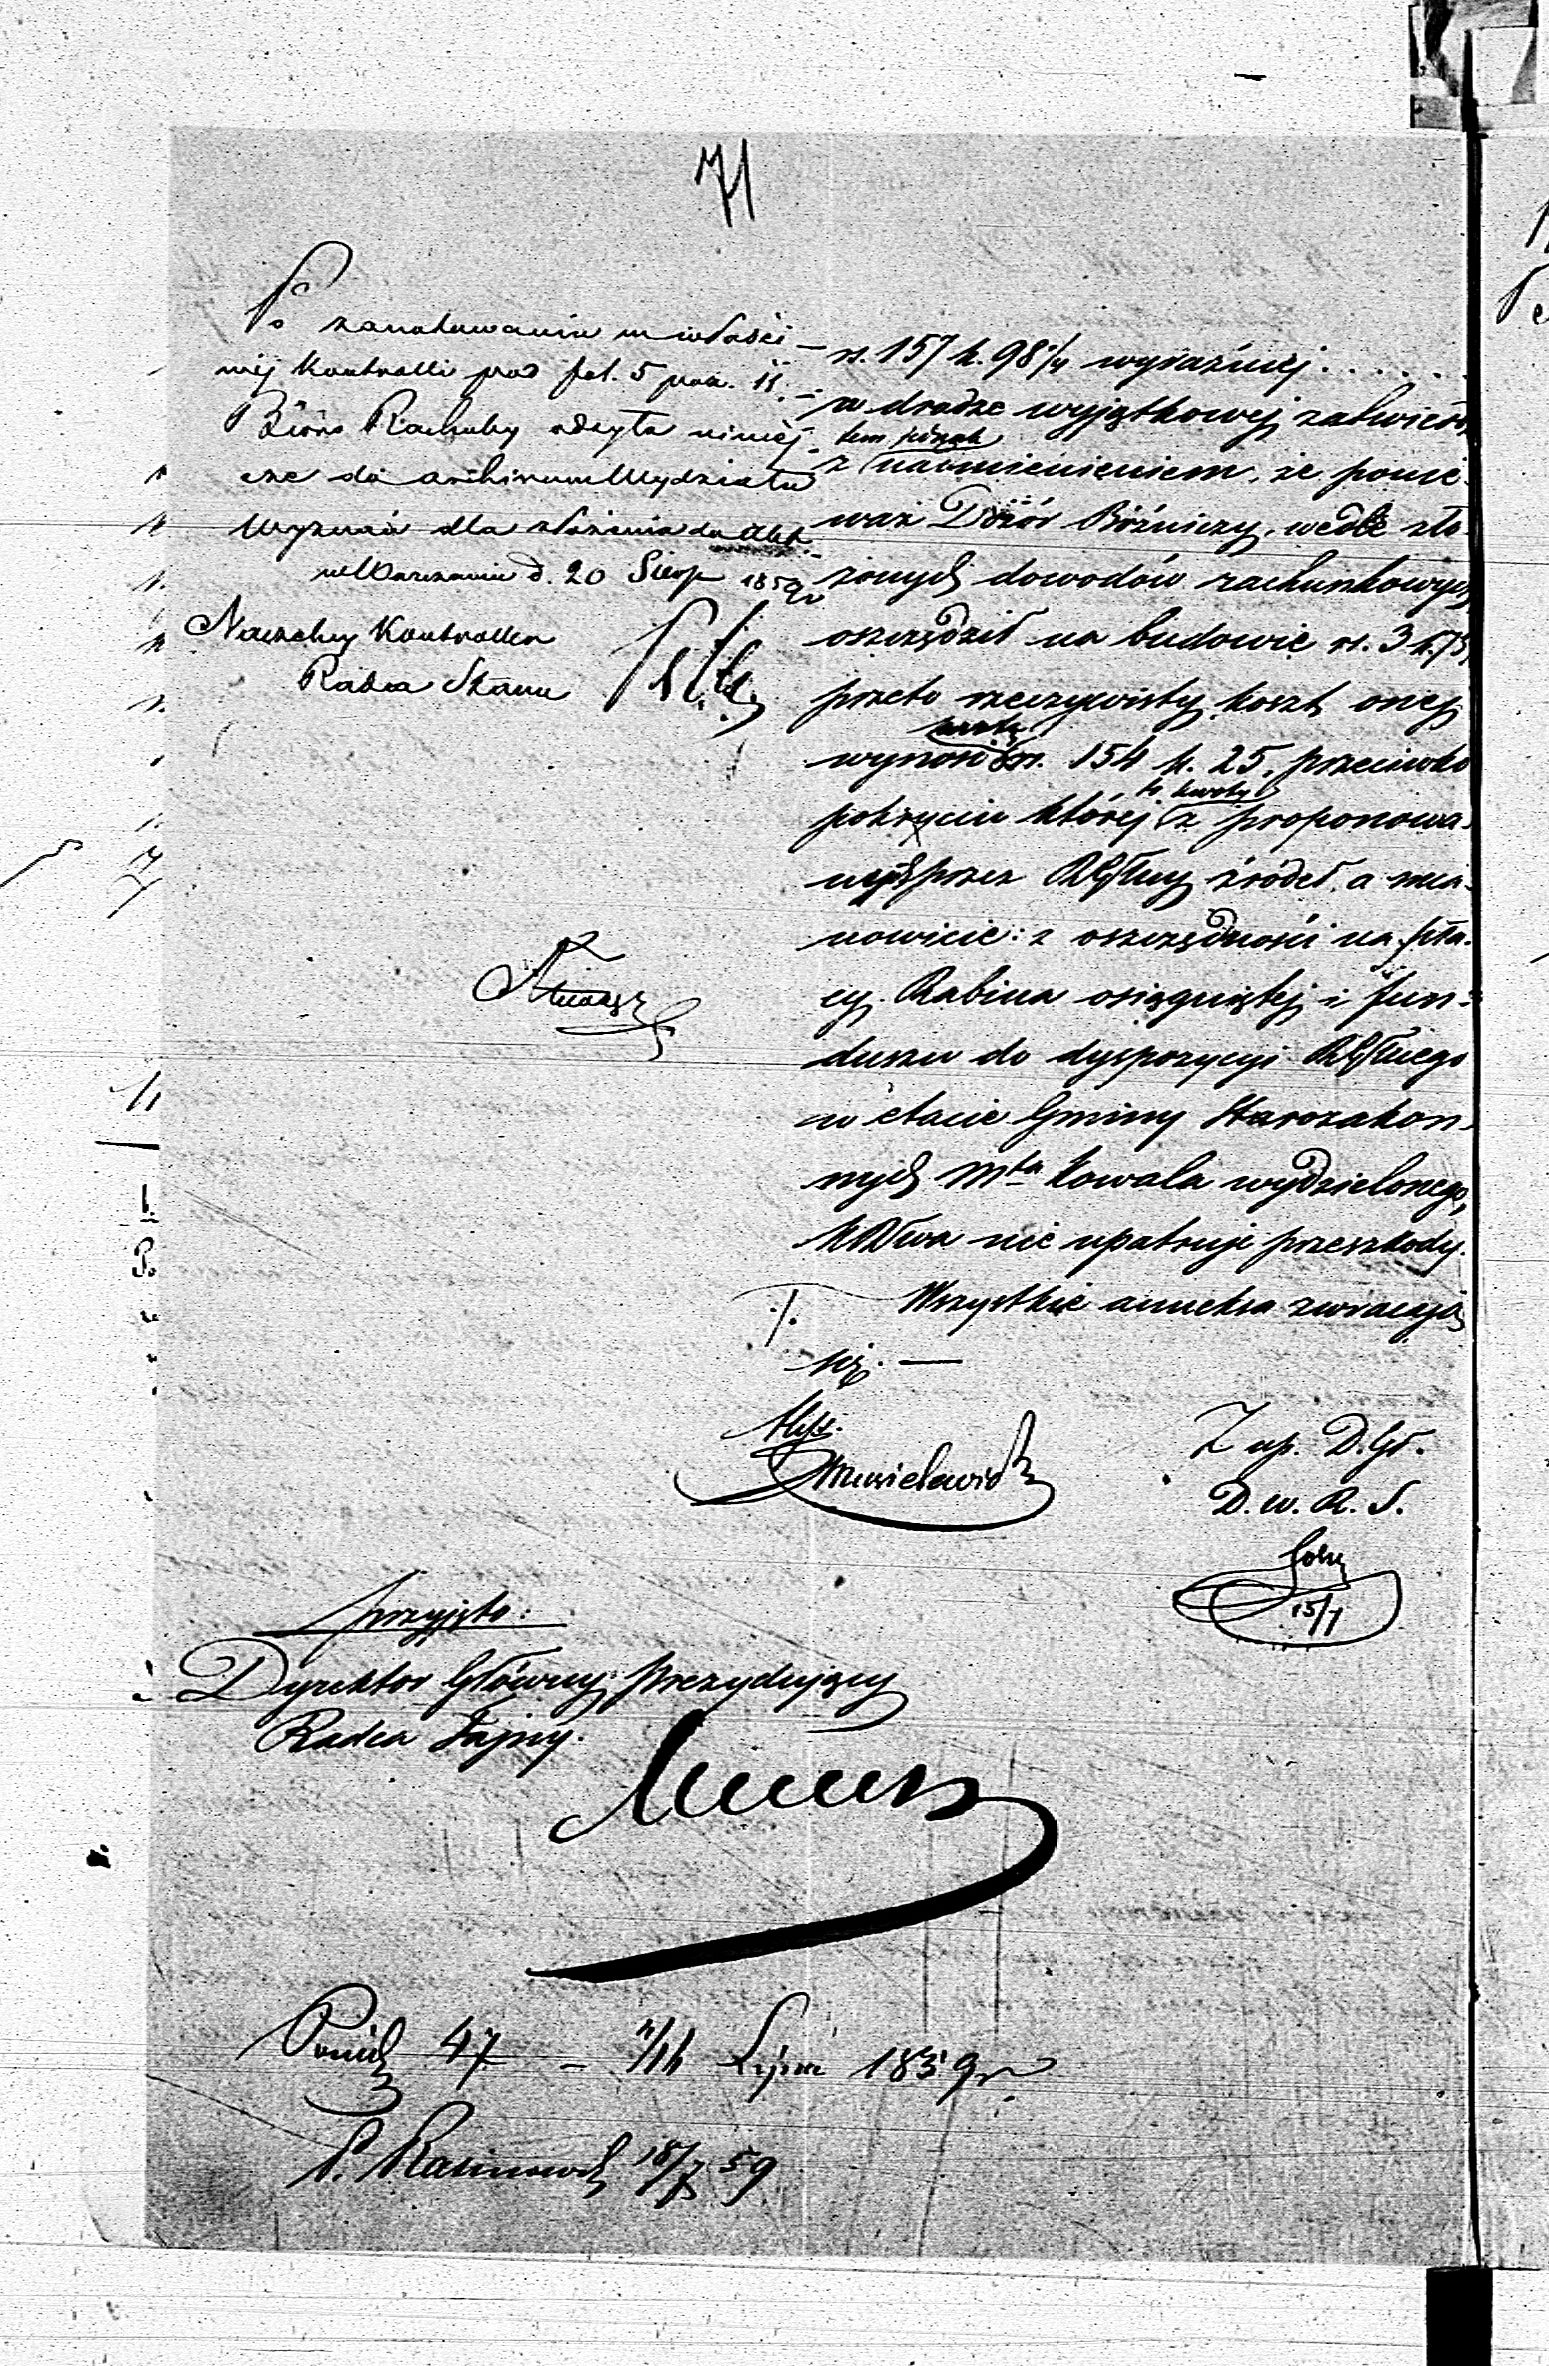 71
Po zanotowaniu w właści-
wéj Kontrolli pod fol. 5 poz. 11.
Bióro Rachuby odsyła niniéj
sze do archiwum Wydziału
Wyznań dla złożenia do Akt.
w Warszawie d. 20 Sierp 1859 r
Naczelny Kontroller
Radca Stanu
rs. 157 k. 98 1/4 wyraźniej . . . . . .
w drodze wyjątkowej zatwierdza
tem
z nadmienieniem, że ponie-
waż Dozór Bóżniczy, wedle zło-
żonych dowodów rachunkowych
oszczędził na budowie rs. 3 k. 73,
przeto rzeczywisty koszt onej
wynosi rs. 154 k. 25. przeciwko
téj kwoty
pokryciu której z proponowa-
nych przez RGłny źródeł, a mia-
nowicie: z oszczędności na pła-
cy Rabina osiągniętej i fun-
duszu do dyspozycyi RGłnego
w etacie Gminy Starozakon-
nych mta Kowala wydzielonego,
KRwa nie upatruje przeszkody.
./. Wszystkie annexa zwracają
się. —
Z up. D. Gł.
D. w. R. S.
15/7
przyjęto:
Dyrektor Główny prezydujący
Radca Tajny.
47 – 4/16 Lipca 1859 r.
18/7 59